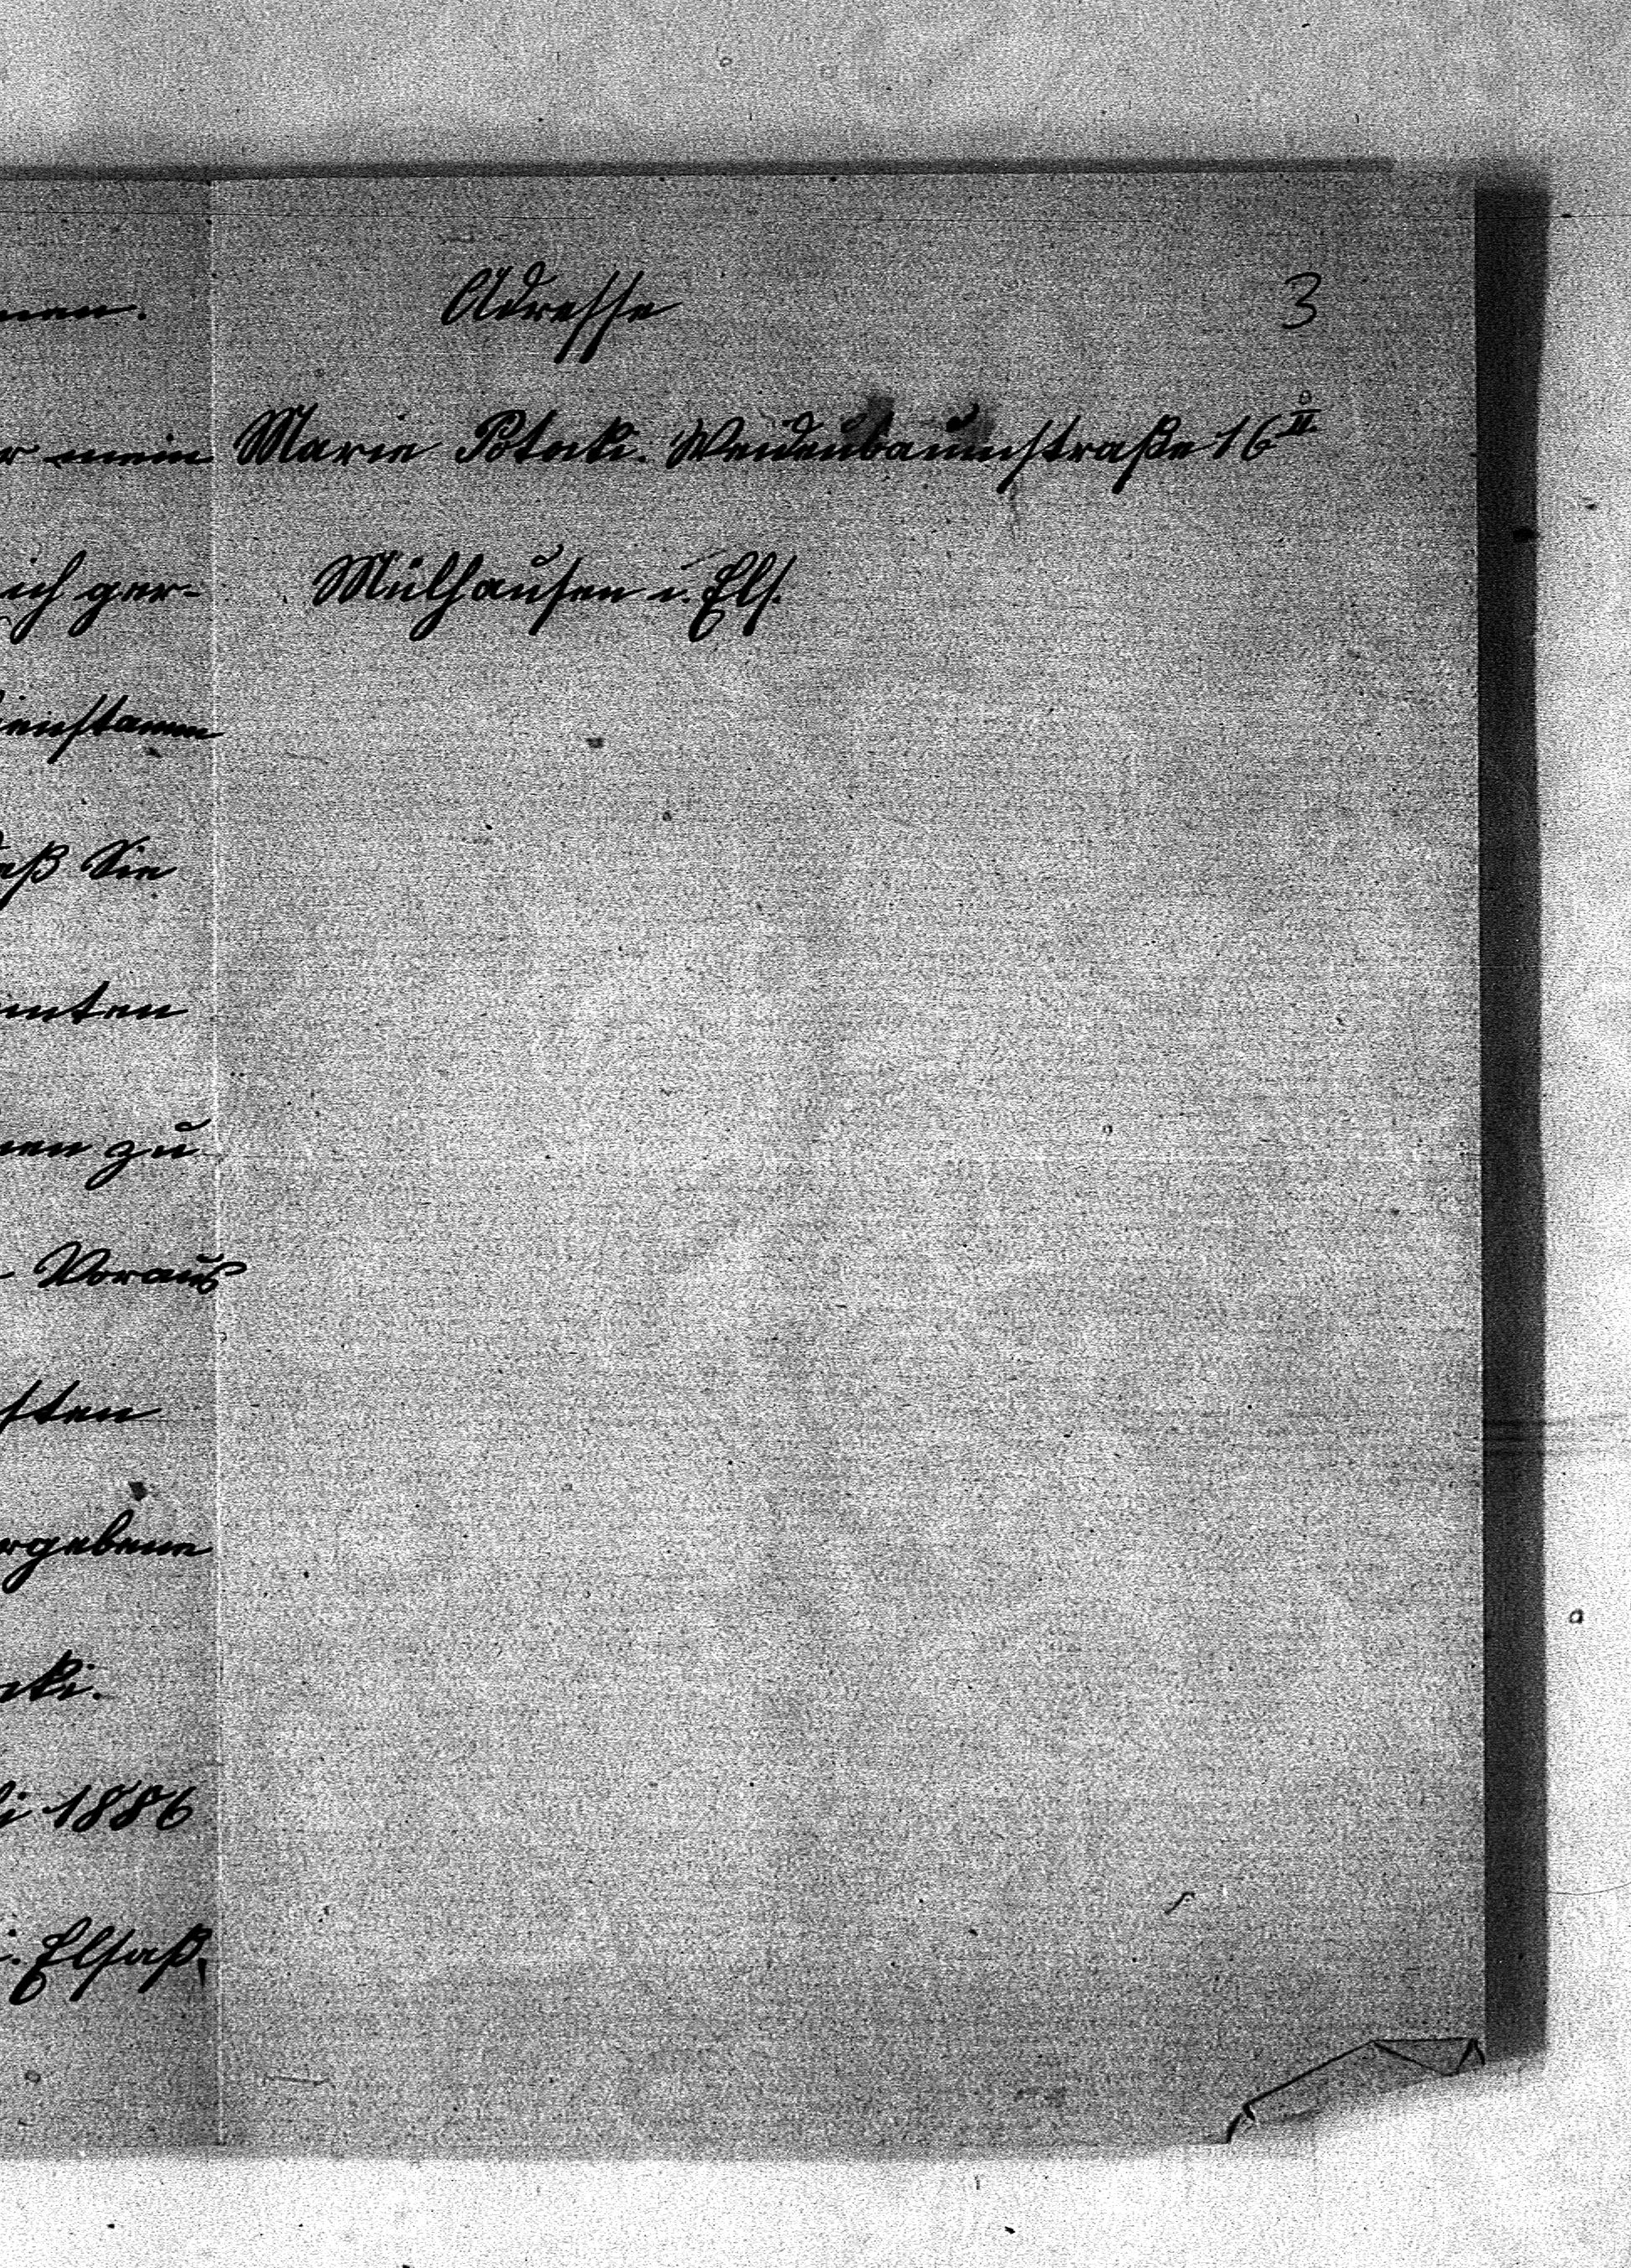 nen.
r mein
ich ger-
ienstamm
aß Sie
nnten
nen zu
Voraus
sten
ergebene
ocki.
li 1886
i. Elsaß.
Adresse 3
Marie Potocki. Weidenbaumstraße 16 II
Mülhausen i. Els.